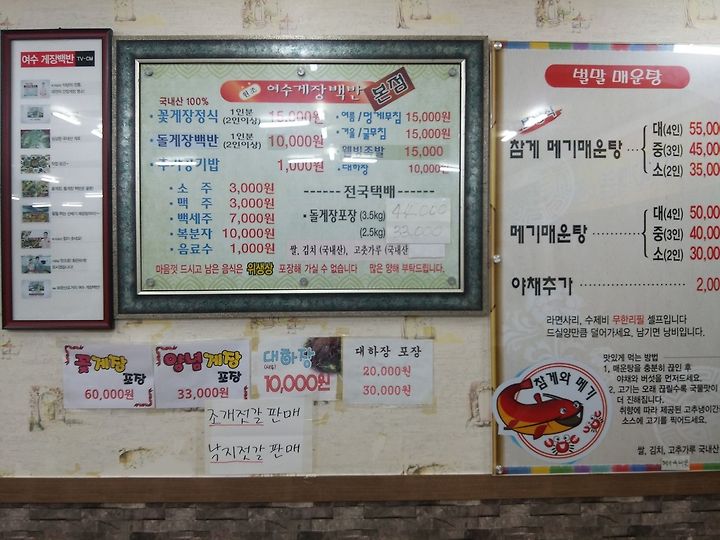 여수 게장백반 TV-CM
원조 여수게장백반 본점
국내산 100%
꽃게장정식 1인분 (2인이상) 15,000원
돌게장백반 1인분 (2인이상) 10,000원
추가공기밥 1,000원
여름/멍게무침 15,000원
겨울/굴무침 15,000원
15,000
대하장 10,000원
소 주 3,000원
맥 주 3,000원
백세주 7,000원
복분자 10,000원
음료수 1,000원
------ 전국택배 ------
돌게장포장 (3.5kg) 44,000
(2.5kg) 33,000
쌀, 김치 (국내산), 고춧가루 (국내산
마음껏 드시고 남은 음식은 위생상 포장해 가실 수 없습니다 많은 양해 부탁드립니다.
꽃게장 포장
60,000원
양념게장 포장
33,000원
대하장
10,000원
대하장 포장
20,000원
30,000원
조개젓갈 판매
낙지젓갈 판매
벌말 매운탕
참게 메기매운탕
대(4인) 55,00
중(3인) 45,00
소(2인) 35,00
메기매운탕
대(4인) 50,00
중(3인) 40,00
소(2인) 30,00
야채추가 2,00
라면사리, 수제비 무한리필 셀프입니다
드실양만큼 덜어가세요, 남기면 낭비입니다.
맛있게 먹는 방법
1, 매운탕을 충분히 끓인 후
야채와 버섯을 먼저드세요.
2, 고기는 오래 끓일수록 국물맛이
더 진해집니다.
취향에 따라 제공된 고추냉이간
소스에 고기를 찍어드세요.
참게와 메기
쌀, 김치, 고추가루 국내산